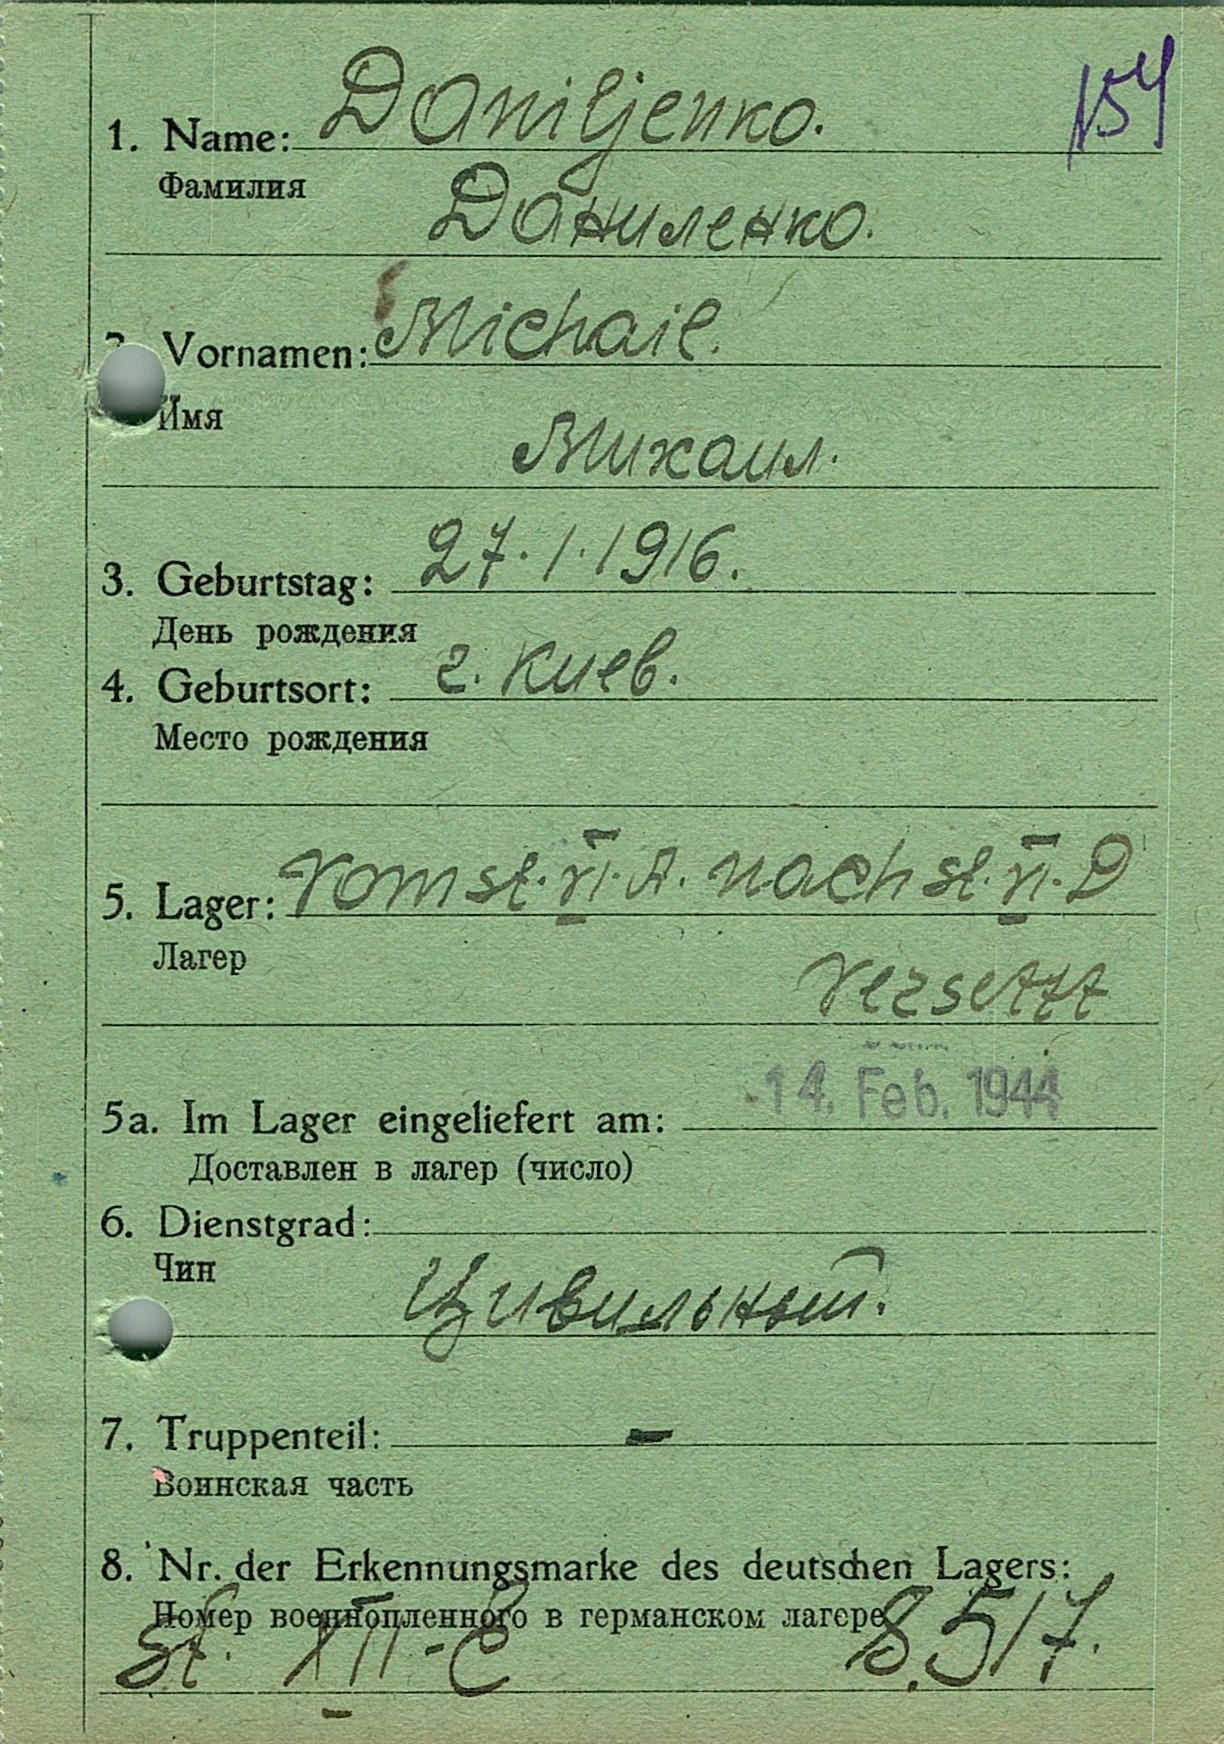 154
1. Name: Daniljenko.
Фамилия
Даниленко.
2. Vornamen: Michail.
Имя
Михаил.
3. Geburtstag: 27.1.1916.
День рождения
4. Geburtsort: г. Киев.
Место рождения
5. Lager: Vom st. VI. A. nach st. VI. D
Лагер
versetzt
14. Feb. 1944
5a. Im Lager eingeliefert am:
Доставлен в лагер (число)
6. Dienstgrad:
Чин
Цивильный.
7. Truppenteil: –
Воинская часть
8. Nr. der Erkennungsmarke des deutschen Lagers:
Номер военнопленного в германском лагере
st. XII-C 8.517.